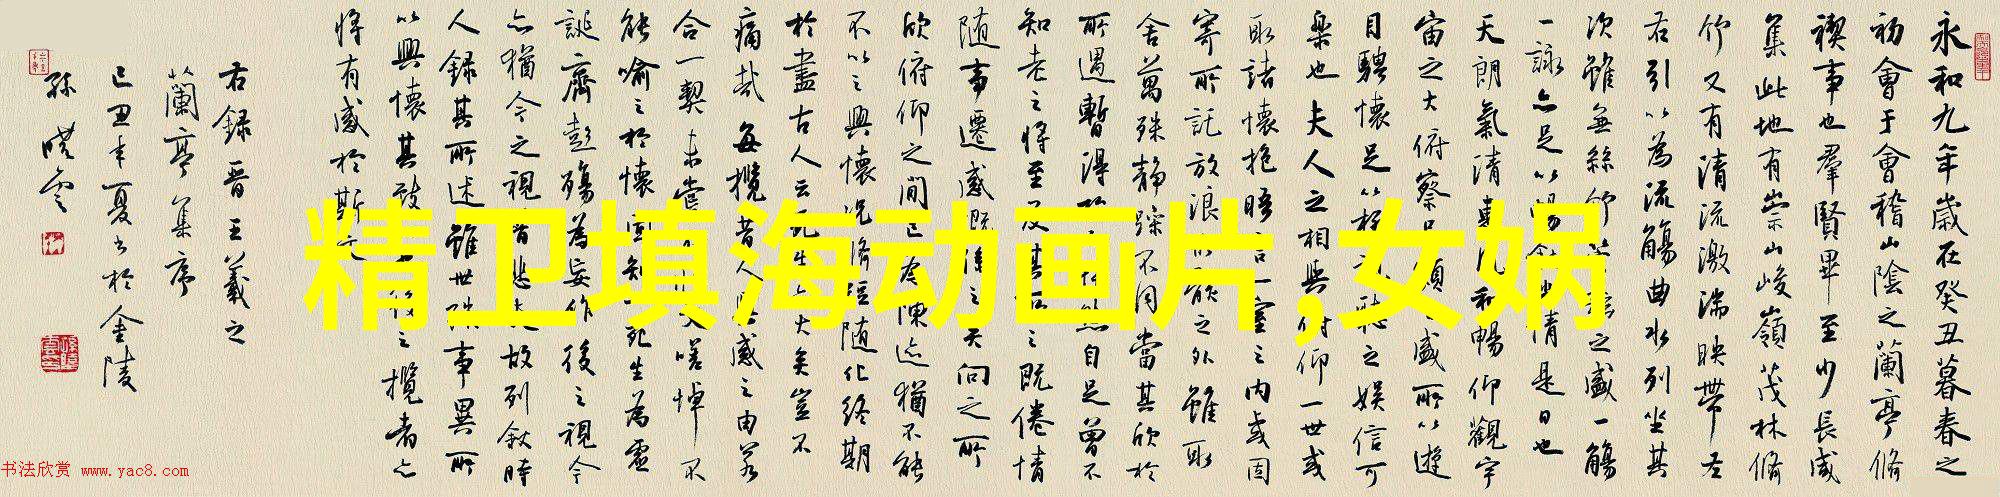 永和九年歲在癸丑暮春之
初會于會稽山陰之蘭亭脩
禊事也羣賢畢至少長咸
集此地有崇山峻嶺茂林脩
竹又有清流激湍映帶左
右引以為流觴曲水列坐其
次雖無絲竹之盛一觴
一詠亦足以暢情是日也
天朗氣清惠風和暢仰觀宇
宙之大俯察品類盛所以遊
目騁懷足以極聽之娛信可
樂也夫人之相與俯仰一世或
取諸懷抱晤言一室之内或因
寄所託放浪骸之外雖取
舍萬殊靜躁不同當其欣於
所遇暫得於然自足曾不
知老之將至及其所之既倦情
隨事遷感慨係之矣向之所
欣俯仰之間已為陳迹猶不能
不以之興懷況脩短隨化終期
於盡古人云死生大矣豈不
痛哉每攬昔人感之由若
合一契未嘗文嗟悼不
能喻之於懷固知死生為虛
誕齊彭殤為妄作後之視今
亦猶今之視昔悲夫故列叙時
人録其所述雖世殊事異所
以興懷其致一之攬者亦
將有感於斯文
右録晉王羲之
蘭亭集序
己丑年夏書於金陵
孫曉雲
精卫填海动画片,女娲
书法欣赏 www.yac8.com